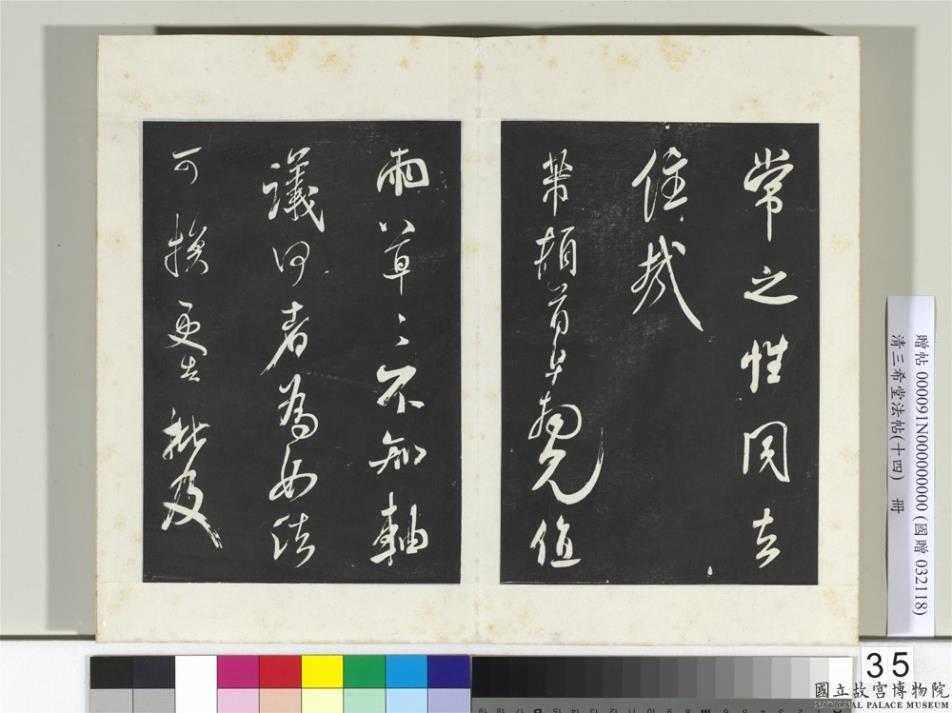 常之性同去
住哉
芾頓首早拜見值
雨草草不知軸
議何者為如法
可換更告批及
贈帖 000091N000000000 (國贈 032118)
清三希堂法帖(十四) 冊
35
國立故宮博物院
NATIONAL PALACE MUSEUM